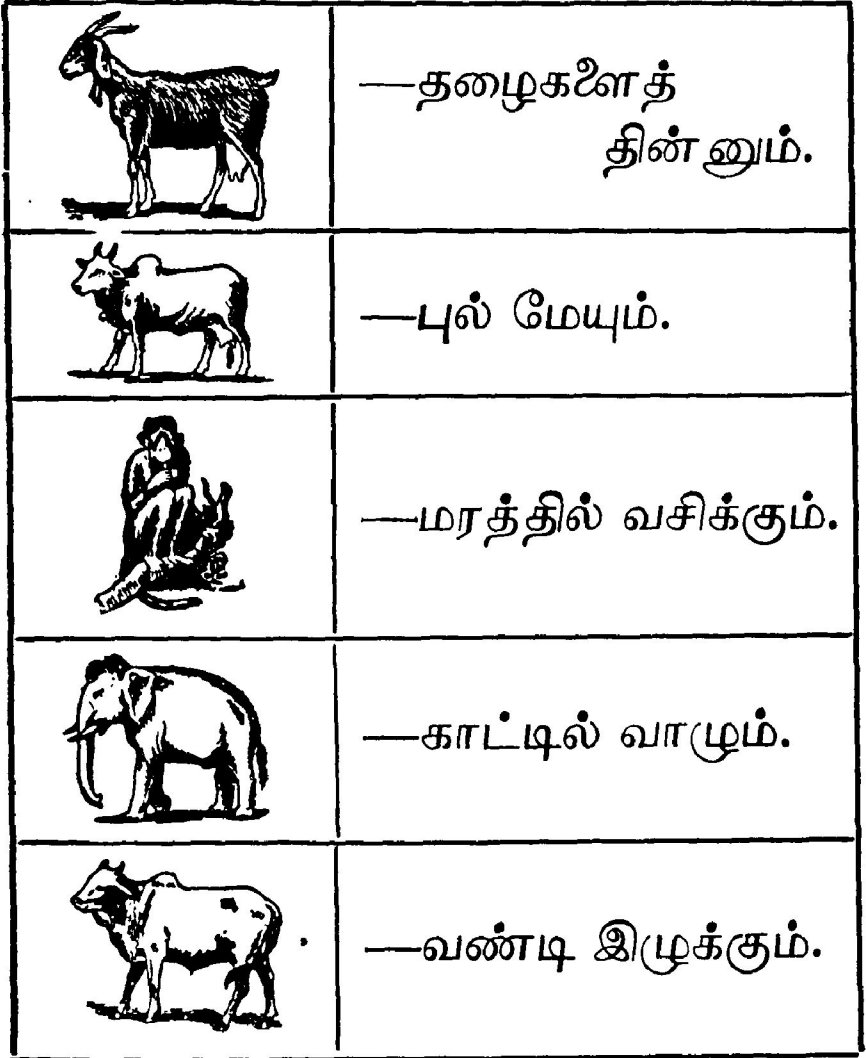 —தழைகளைத்
தின்னும்.
—புல் மேயும்.
—மரத்தில் வசிக்கும்.
—காட்டில் வாழும்.
—வண்டி இழுக்கும்.